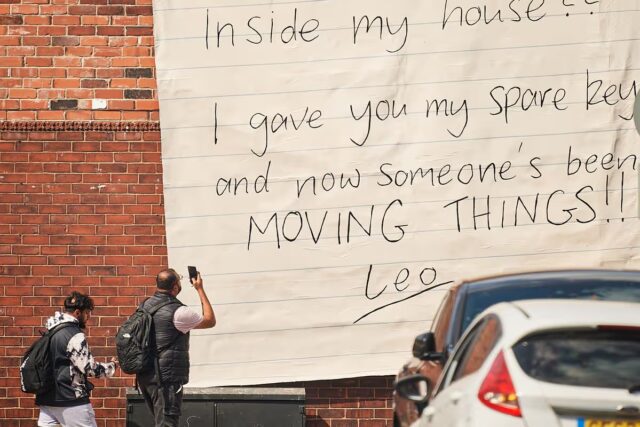 Inside my house!!
I gave you my spare key
and now someone's been
MOVING THINGS!!
Leo